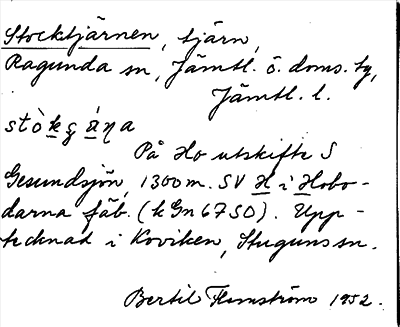 Stocktjärnen, tjärn,
Ragunda sn, Jämtl. ö. doms. tg,
Jämtl. l.
stòkȩáṇa
På Ho utskifte S
Gesundsjön, 1300m. SV H i Hobo-
darna fäb. (kGn67SO). Upp-
tecknad i Koviken, Stuguns sn.
Bertil Flemström 1952.